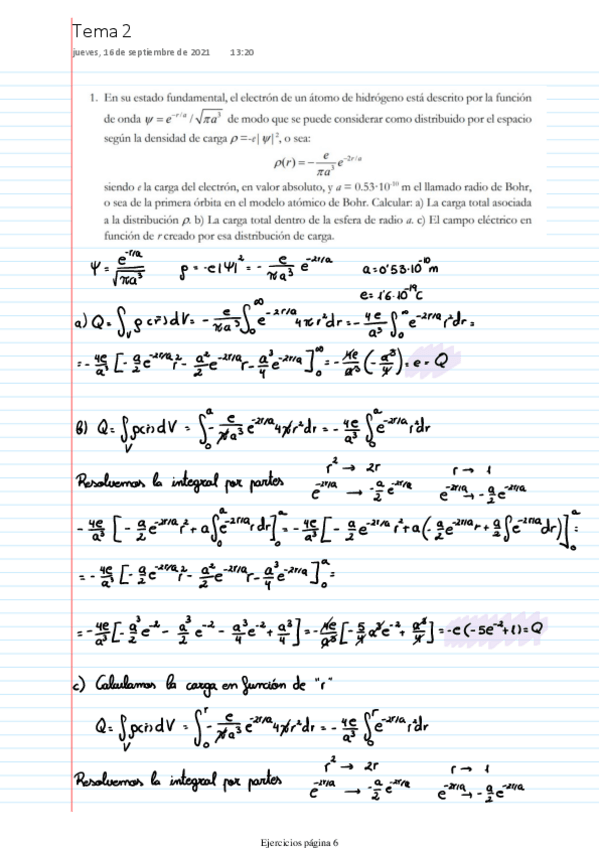 Tema 2
jueves, 16 de septiembre de 2021 13:20
1. En su estado fundamental, el electrón de un átomo de hidrógeno está descrito por la función
de onda ψ = e^(-r/a) / √(πa³) de modo que se puede considerar como distribuido por el espacio
según la densidad de carga ρ = -e|ψ|², o sea:
ρ(r) = - e/(πa³) e^(-2r/a)
siendo e la carga del electrón, en valor absoluto, y a = 0.53·10⁻¹⁰ m el llamado radio de Bohr,
o sea de la primera órbita en el modelo atómico de Bohr. Calcular: a) La carga total asociada
a la distribución ρ. b) La carga total dentro de la esfera de radio a. c) El campo eléctrico en
función de r creado por esa distribución de carga.
ψ = e^(-r/a)/√(πa³) ρ = -e|ψ|² = - e/(πa³) e^(-2r/a) a = 0'53·10⁻¹⁰ m
e = 1'6·10⁻¹⁹ C
a) Q = ∫_V ρ(r) dV = - e/(πa³) ∫₀^∞ e^(-2r/a) 4πr² dr = - 4e/a³ ∫₀^∞ e^(-2r/a) r² dr =
= - 4e/a³ [- a/2 e^(-2r/a) r² - a²/2 e^(-2r/a) r - a³/4 e^(-2r/a)]₀^∞ = - 4e/a³ (- a³/4) = e = Q
b) Q = ∫_V ρ(r) dV = ∫₀^a - e/(πa³) e^(-2r/a) 4πr² dr = - 4e/a³ ∫₀^a e^(-2r/a) r² dr
Resolvemos la integral por partes r² → 2r r → 1
e^(-2r/a) → - a/2 e^(-2r/a) e^(-2r/a) → - a/2 e^(-2r/a)
- 4e/a³ [- a/2 e^(-2r/a) r² + a ∫₀^a e^(-2r/a) r dr]₀^a = - 4e/a³ [- a/2 e^(-2r/a) r² + a (- a/2 e^(-2r/a) r + a/2 ∫ e^(-2r/a) dr)]₀^a =
= - 4e/a³ [- a/2 e^(-2r/a) r² - a²/2 e^(-2r/a) r - a³/4 e^(-2r/a)]₀^a =
= - 4e/a³ [- a³/2 e⁻² - a³/2 e⁻² - a³/4 e⁻² + a³/4] = - 4e/a³ [- 5/4 a³ e⁻² + a³/4] = -e (-5e⁻² + 1) = Q
c) Calculamos la carga en función de "r"
Q = ∫_V ρ(r) dV = ∫₀^r - e/(πa³) e^(-2r/a) 4πr² dr = - 4e/a³ ∫₀^r e^(-2r/a) r² dr
Resolvemos la integral por partes r² → 2r r → 1
e^(-2r/a) → - a/2 e^(-2r/a) e^(-2r/a) → - a/2 e^(-2r/a)
Ejercicios página 6